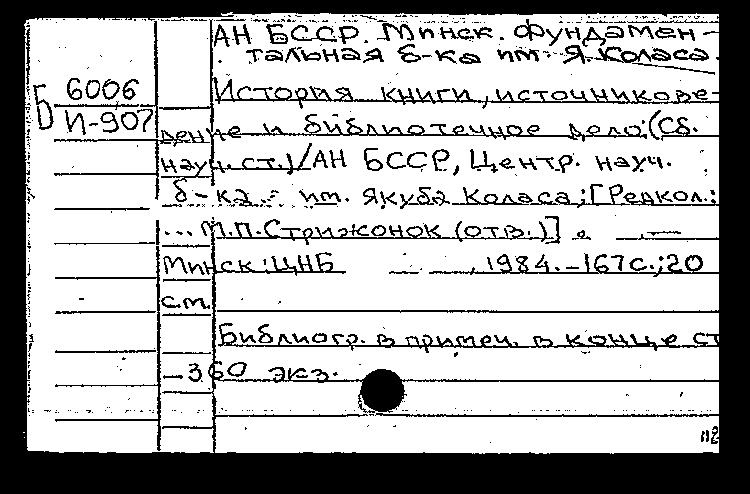 АН БССР. Минск. Фундамен-
тальная б-ка им. Я. Коласа.
Б 6006
И-907
История книги, источникове-
дение и библиотечное дело: (Сб.
науч. ст.) / АН БССР, Центр. науч.
б-ка им. Якуба Коласа; [Редкол.:
... М.П. Стрижонок (отв.)].  —
Минск: ЦНБ , 1984. – 167 с.; 20
см.
Библиогр. в примеч. в конце ст
– 360 экз.